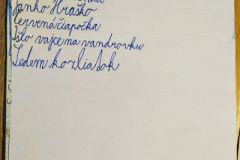 Janko Hraško
Červená čiapočka
Išlo vajce na vandrovku
Sedem kozliatok